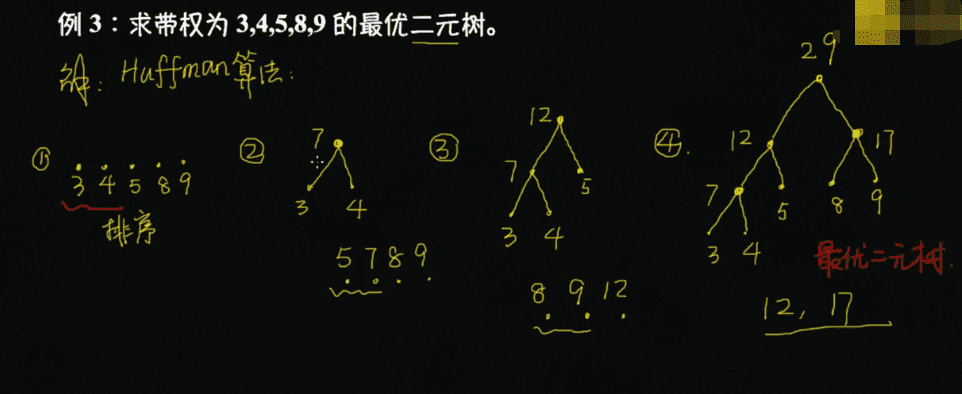 例 3：求带权为 3,4,5,8,9 的最优二元树。
解：Huffman算法：
①
3 4 5 8 9
排序
②
7
3 4
5 7 8 9
③
12
7 5
3 4
8 9 12
④.
29
12 17
7 5 8 9
3 4
最优二元树.
12, 17